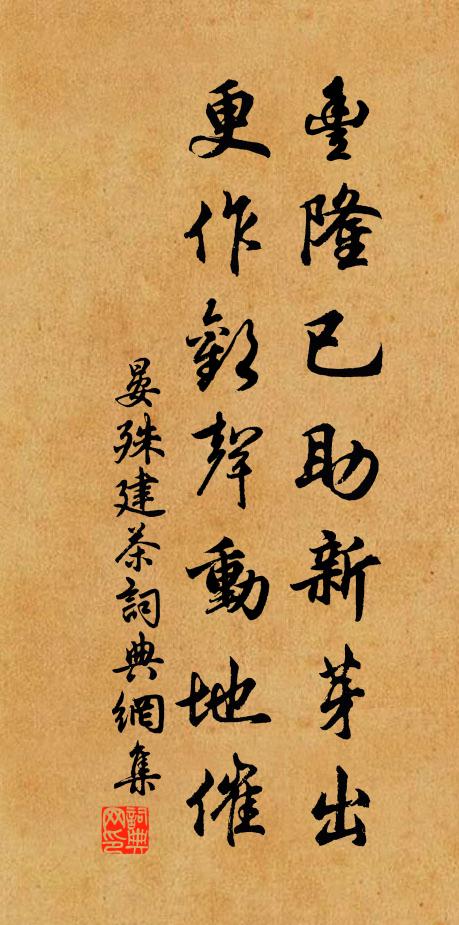 豐隆已助新芽出
更作歡聲動地催
晏殊建茶詞典網集
詞典网印